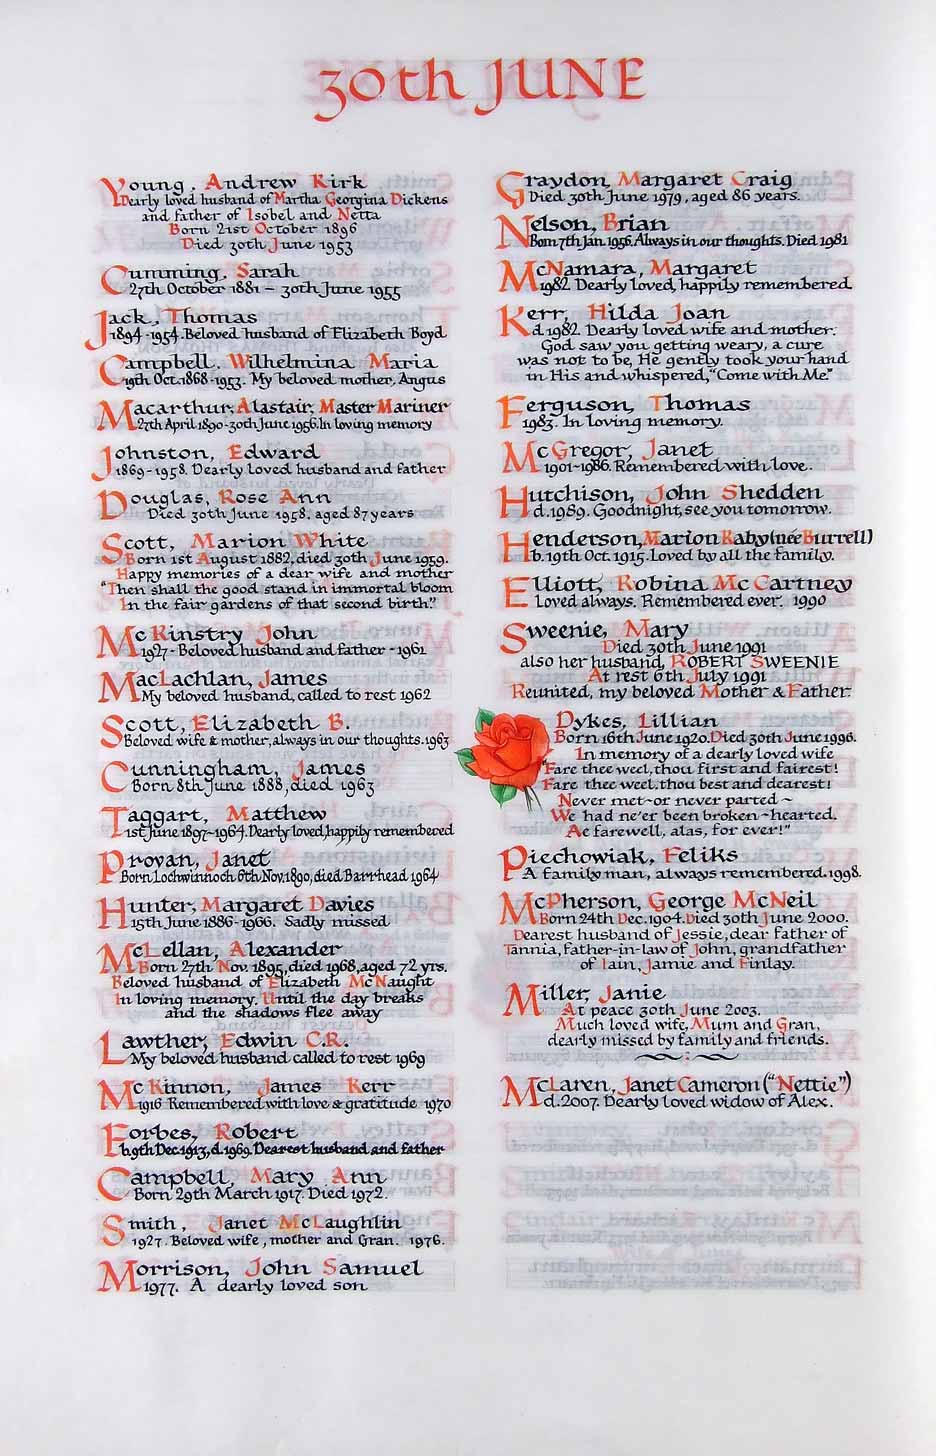 30th JUNE
Young, Andrew Kirk
Dearly loved husband of Martha Georgina Dickens
and father of Isobel and Netta
Born 21st October 1896
Died 30th June 1953
Cumming, Sarah
27th October 1881 – 30th June 1955
Jack, Thomas
1894-1954. Beloved husband of Elizabeth Boyd
Campbell, Wilhelmina Maria
19th Oct.1868-1953. My beloved mother, Angus
Macarthur, Alastair, Master Mariner
27th April 1890-30th June 1956. In loving memory
Johnston, Edward
1869-1958. Dearly loved husband and father
Douglas, Rose Ann
Died 30th June 1958, aged 87 years
Scott, Marion White
Born 1st August 1882, died 30th June 1959.
Happy memories of a dear wife and mother
"Then shall the good stand in immortal bloom
In the fair gardens of that second birth."
McKinstry John
1927 - Beloved husband and father - 1961
MacLachlan, James
My beloved husband, called to rest 1962
Scott, Elizabeth B.
Beloved wife & mother, always in our thoughts. 1963
Cunningham, James
Born 8th June 1888, died 1963
Taggart, Matthew
1st June 1897-1964. Dearly loved, happily remembered
Provan, Janet
Born Lochwinnoch 6th Nov.1890, died Barrhead 1964
Hunter, Margaret Davies
15th June 1886-1966. Sadly missed
McLellan, Alexander
Born 27th Nov. 1895, died 1968, aged 72 yrs.
Beloved husband of Elizabeth McNaught
In loving memory. Until the day breaks
and the shadows flee away
Lawther, Edwin C.R.
My beloved husband called to rest 1969
McKinnon, James Kerr
1916 Remembered with love & gratitude 1970
Forbes, Robert
b.9th Dec.1913, d.1969. Dearest husband and father
Campbell, Mary Ann
Born 29th March 1917. Died 1972.
Smith, Janet McLaughlin
1927. Beloved wife, mother and Gran. 1976.
Morrison, John Samuel
1977. A dearly loved son
Graydon, Margaret Craig
Died 30th June 1979, aged 86 years.
Nelson, Brian
Born 7th Jan. 1956. Always in our thoughts. Died 1981
McNamara, Margaret
1982. Dearly loved, happily remembered
Kerr, Hilda Joan
d.1982. Dearly loved wife and mother.
God saw you getting weary, a cure
was not to be, He gently took your hand
in His and whispered, "Come with Me."
Ferguson, Thomas
1983. In loving memory.
McGregor, Janet
1901-1986. Remembered with love.
Hutchison, John Shedden
d.1989. Goodnight, see you tomorrow.
Henderson, Marion Raby (née Burrell)
b. 19th Oct. 1915. Loved by all the family.
Elliott, Robina McCartney
Loved always. Remembered ever. 1990
Sweenie, Mary
Died 30th June 1991
also her husband, ROBERT SWEENIE
At rest 6th July 1991
Reunited, my beloved Mother & Father.
Dykes, Lillian
Born 16th June 1920. Died 30th June 1996.
In memory of a dearly loved wife
"Fare thee weel, thou first and fairest!
Fare thee weel, thou best and dearest!
Never met~or never parted ~
We had ne'er been broken-hearted.
Ae farewell, alas, for ever!"
Piechowiak, Feliks
A family man, always remembered. 1998.
McPherson, George McNeil
Born 24th Dec. 1904. Died 30th June 2000.
Dearest husband of Jessie, dear father of
Tannia, father-in-law of John, grandfather
of Iain, Jamie and Finlay.
Miller, Janie
At peace 30th June 2003.
Much loved wife, Mum and Gran,
dearly missed by family and friends.
McLaren, Janet Cameron ("Nettie")
d.2007. Dearly loved widow of Alex.